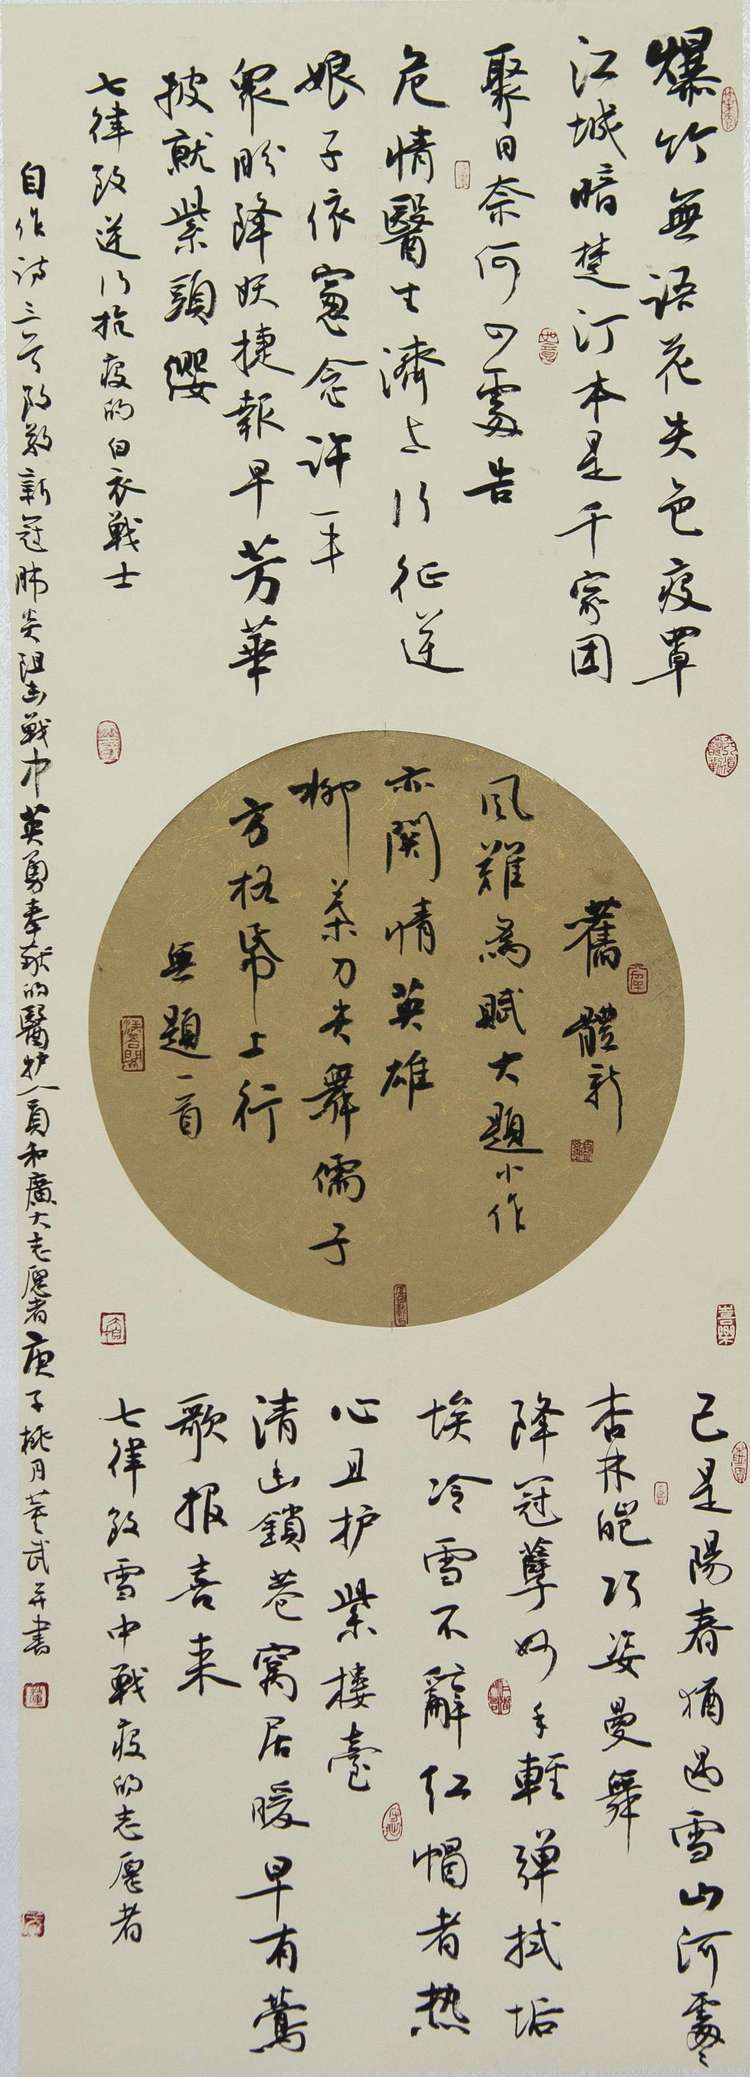 爆竹無语花失色疫罩
江城暗楚汀本是千家团
聚日奈何四處告
危情醫生濟世行征逆
娘子依窗念许
眾盼降妖捷報早芳華
披就紫頭纓
七律致逆行抗疫的白衣戰士
舊體新
風難為赋大題小作
亦関情英雄
柳葉刀尖舞儒子
方格帋上行
無題一首
已是陽春猶遇雪山河處々
杏林皑巧姿曼舞
降冠孽妙手輕弹拭垢
埃冷雪不辭红帽者热
心且护紫樓臺
清幽鎖巷窝居暖早有鶯
歌报喜来
七律致雪中戰疫的志愿者
自作诗三首致敬新冠肺炎阻击戰中英勇奉献的醫护人員和廣大志愿者庚子桃月董武并書